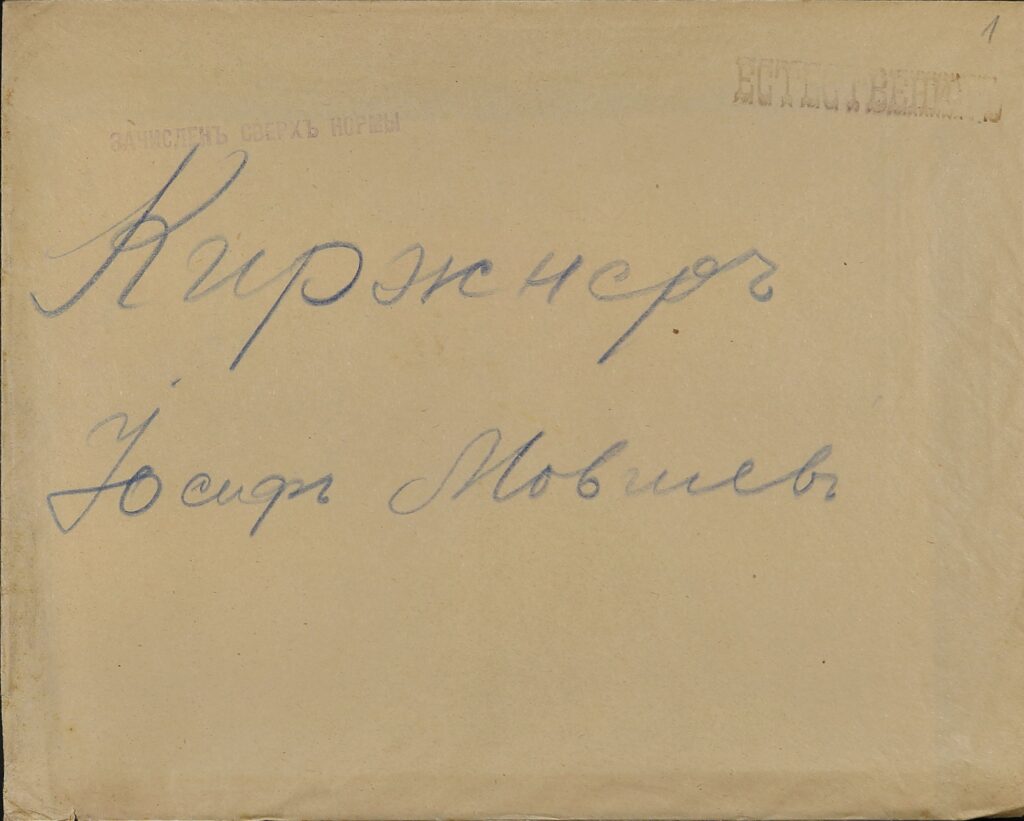 1
ЕСТЕСТВЕНИК
ЗАЧИСЛЕНЪ СВЕРХЪ НОРМЫ
Киржнеръ
Іосифъ Мовшевъ